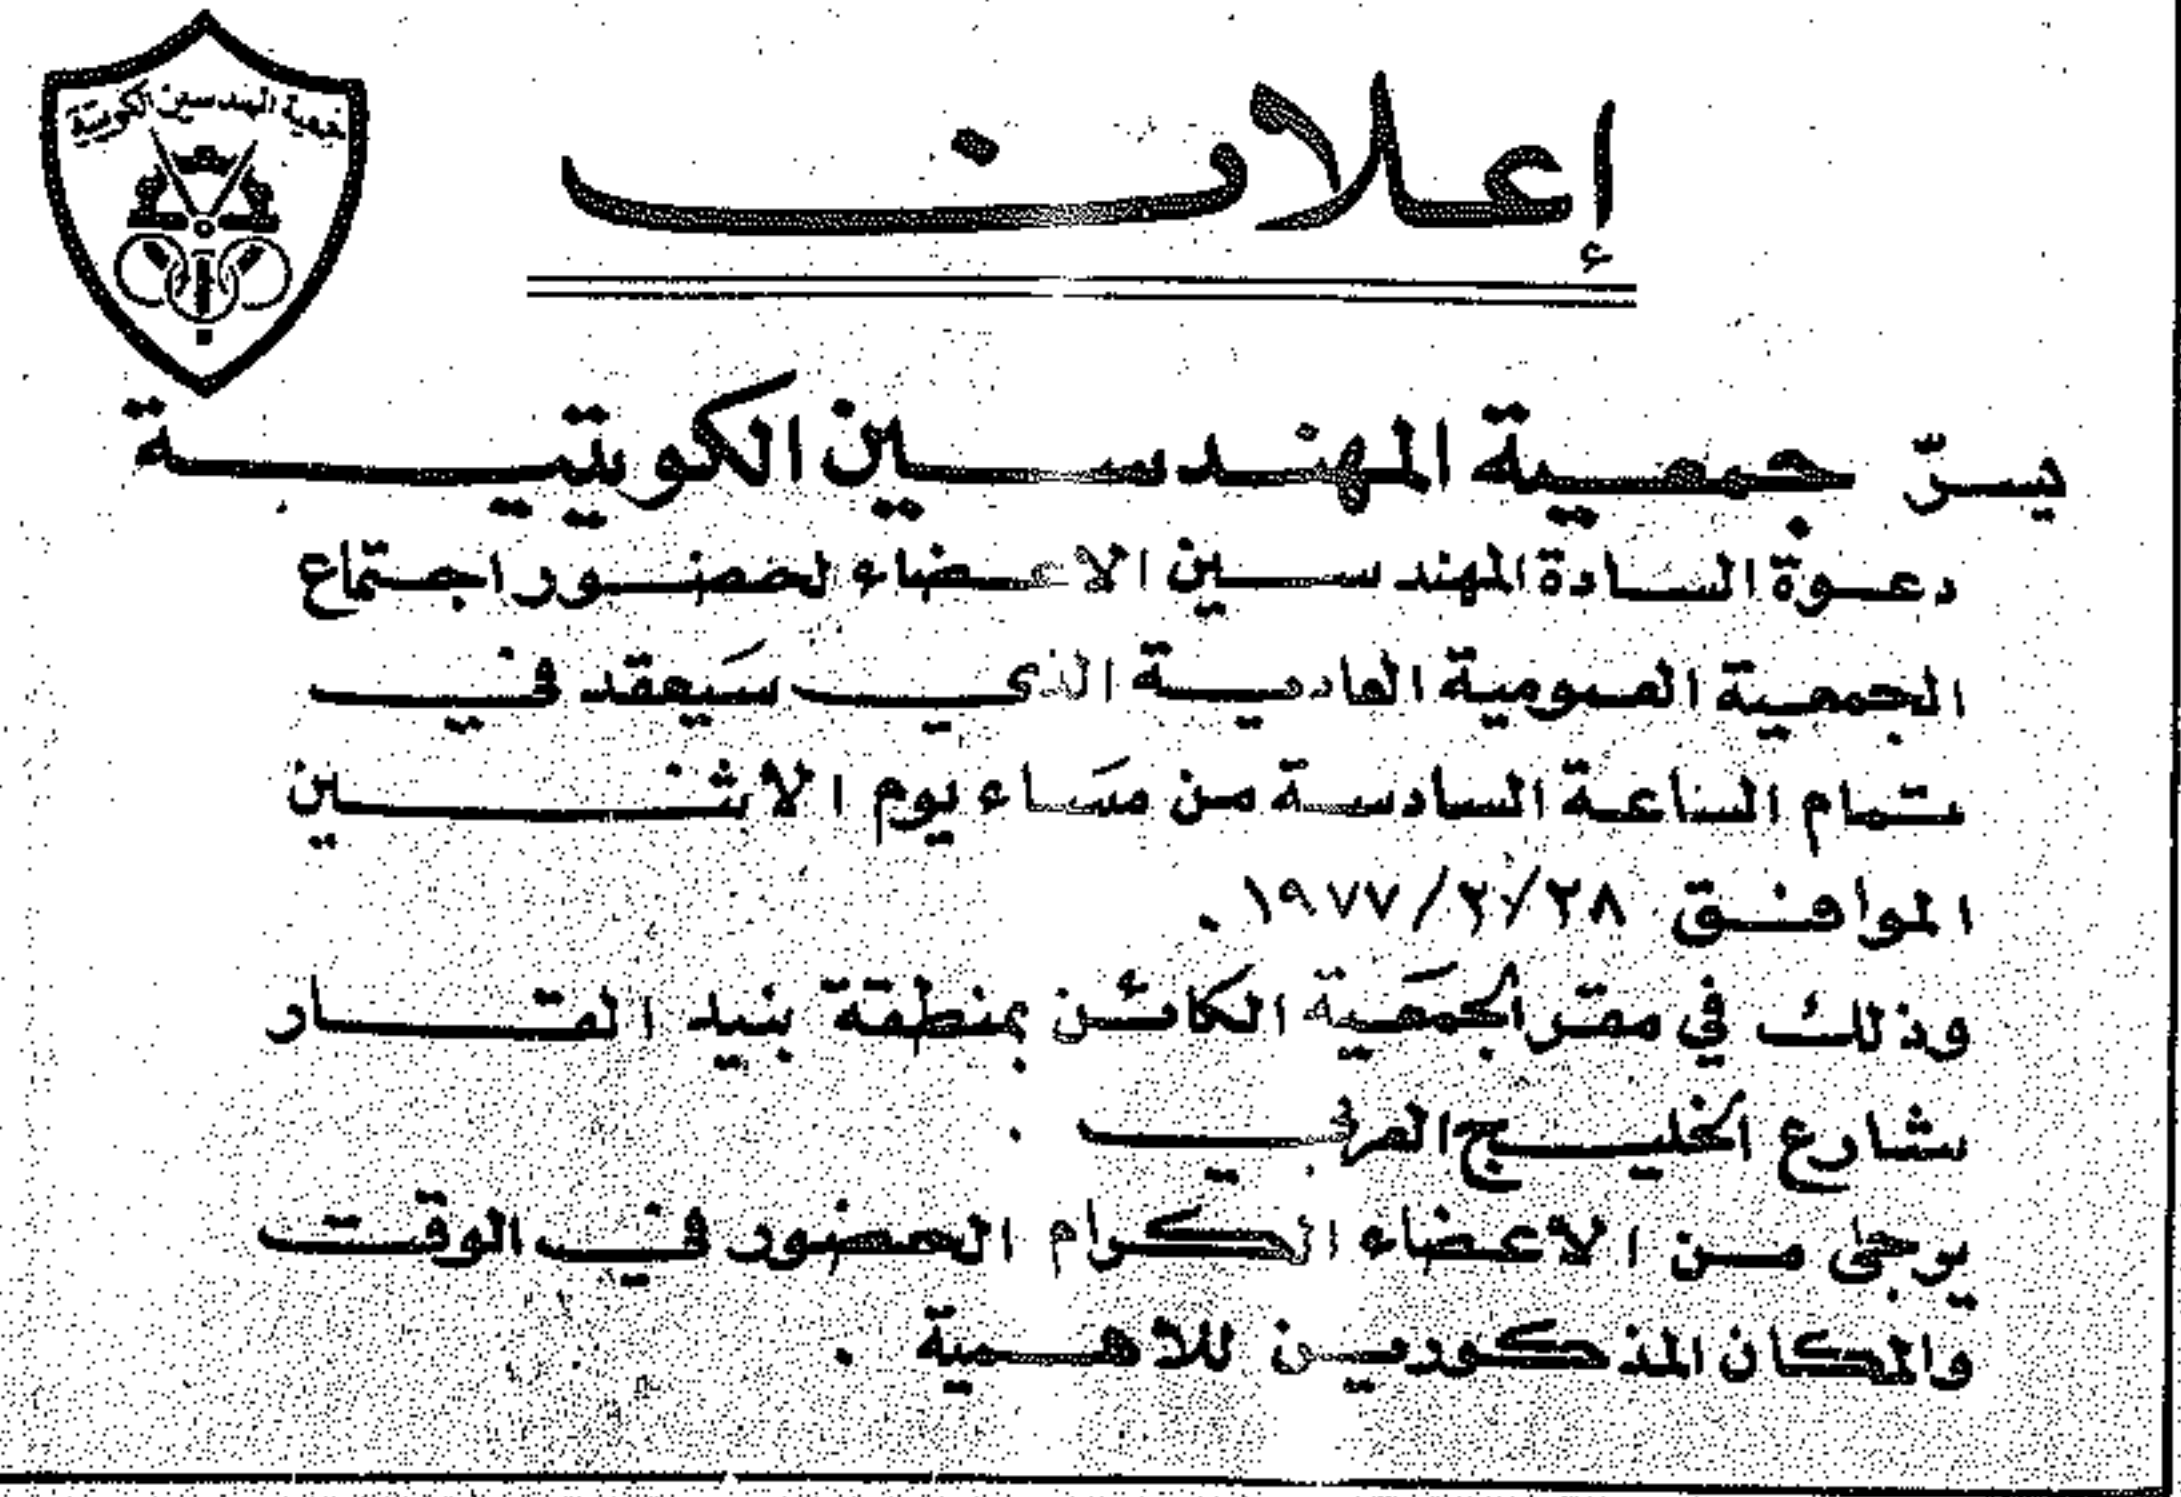 جمعية المهندسين الكويتية
إعلان
يسرّ جمعية المهندسين الكويتية
دعوة السادة المهندسين الاعضاء لحضور اجتماع
الجمعية العمومية العادية الذي سَيعقد في
تمام الساعة السادسة من مسَاء يوم الاثنين
الموافق ٢٨/٢/١٩٧٧ .
وذلك في مقرّ الجمعَية الكائن بمنطقة بنيد القار
شارع الخليج العربي .
يرجى من الاعضاء الكرام الحضور في الوقت
والمكان المذكورين للاهمية .